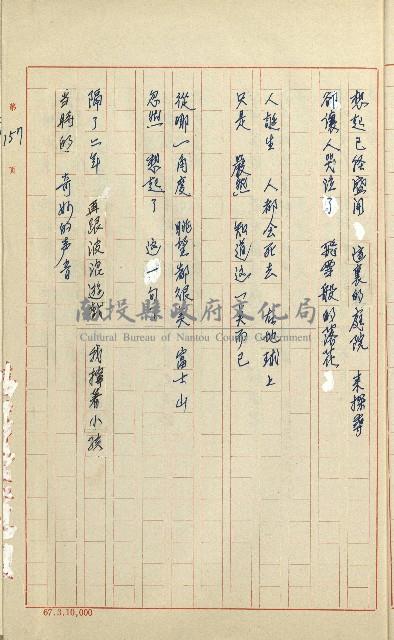 想起已經盛開 這裏的庭院 來探尋
卻讓人哭泣了 般的落花
人誕生 人都會死去 在地球上
只是 知道這一点而已
從哪一角度 眺望都很美 富士山
忽然 想起了 這一句
隔了二年 再跟波浪遊戲 我擁着小孩
当時的 奇妙的声音
第 157 頁
南投縣政府文化局
Cultural Bureau of Nantou County Government
67.3.10,000